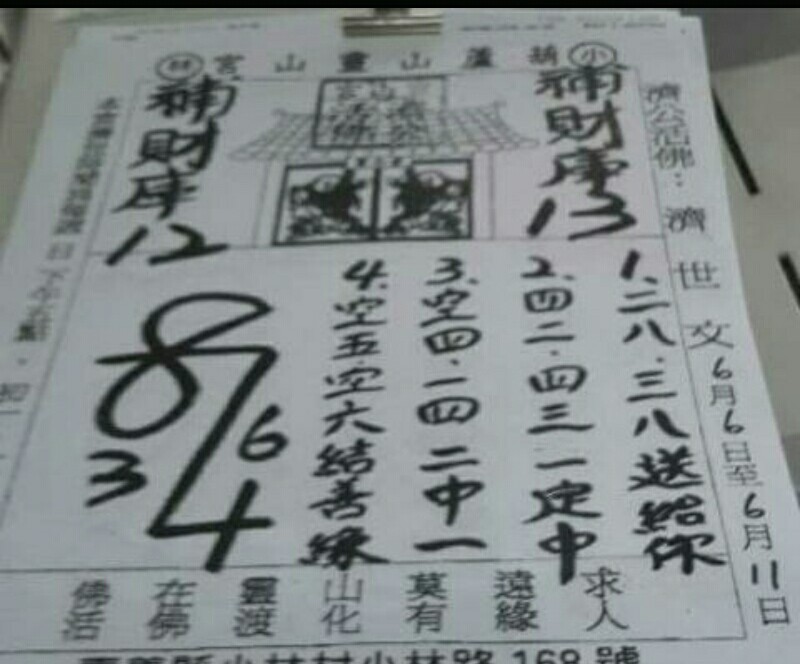 小葫蘆山靈山宮林
濟公活佛：濟世文 6月6日至6月11日
補財庫
13
補財庫
12
1.二八.三八送給你
2.四二.四三一定中
3.空四.一四二中一
4.空五.空六結善緣
8
6
3
4
佛在靈山莫遠求
活佛渡化有緣人
日下午五點
小林村小林路168號